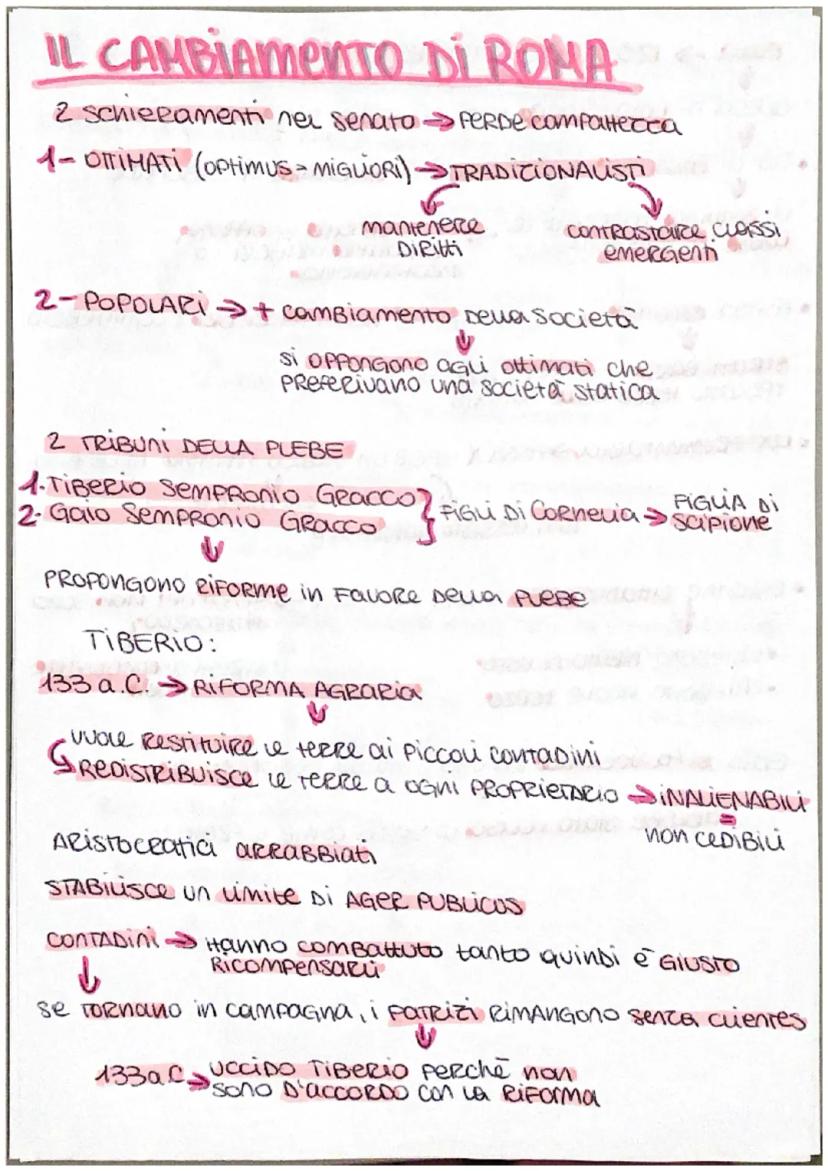 IL CAMBIAMENTO DI ROMA
2 schieramenti nel senato → PERDE compattezza
1- OTTIMATI (OPTIMUS = MIGLIORI) → TRADIZIONALISTI
mantenere contrastare classi
DIRITTI emergenti
2- POPOLARI → + cambiamento Della Società
si oppongono agli ottimati che
preferivano una società statica
2 TRIBUNI DELLA PLEBE
1. TIBERIO SEMPRONIO GRACCO
2. GAIO SEMPRONIO GRACCO } FIGLI DI CORNELIA → FIGLIA DI
SCIPIONE
PROPONGONO RIFORME in FAVORE DELLA PLEBE
TIBERIO:
133 a.C. → RIFORMA AGRARIA
vuole RESTITUIRE le terre ai piccoli contadini
REDISTRIBUISCE le terre a ogni PROPRIETARIO → INALIENABILI
=
non CEDIBILI
ARISTOCRATICI arrabbiati
STABILISCE un limite DI AGER PUBLICOS
CONTADINI → HANNO COMBATTUTO tanto quindi è GIUSTO
RICOMPENSARLI
se TORNANO in campagna, i PATRIZI RIMANGONO senza clientes
133 a.C → UCCIDO TIBERIO perchè non
sono D'ACCORDO con la RIFORMA